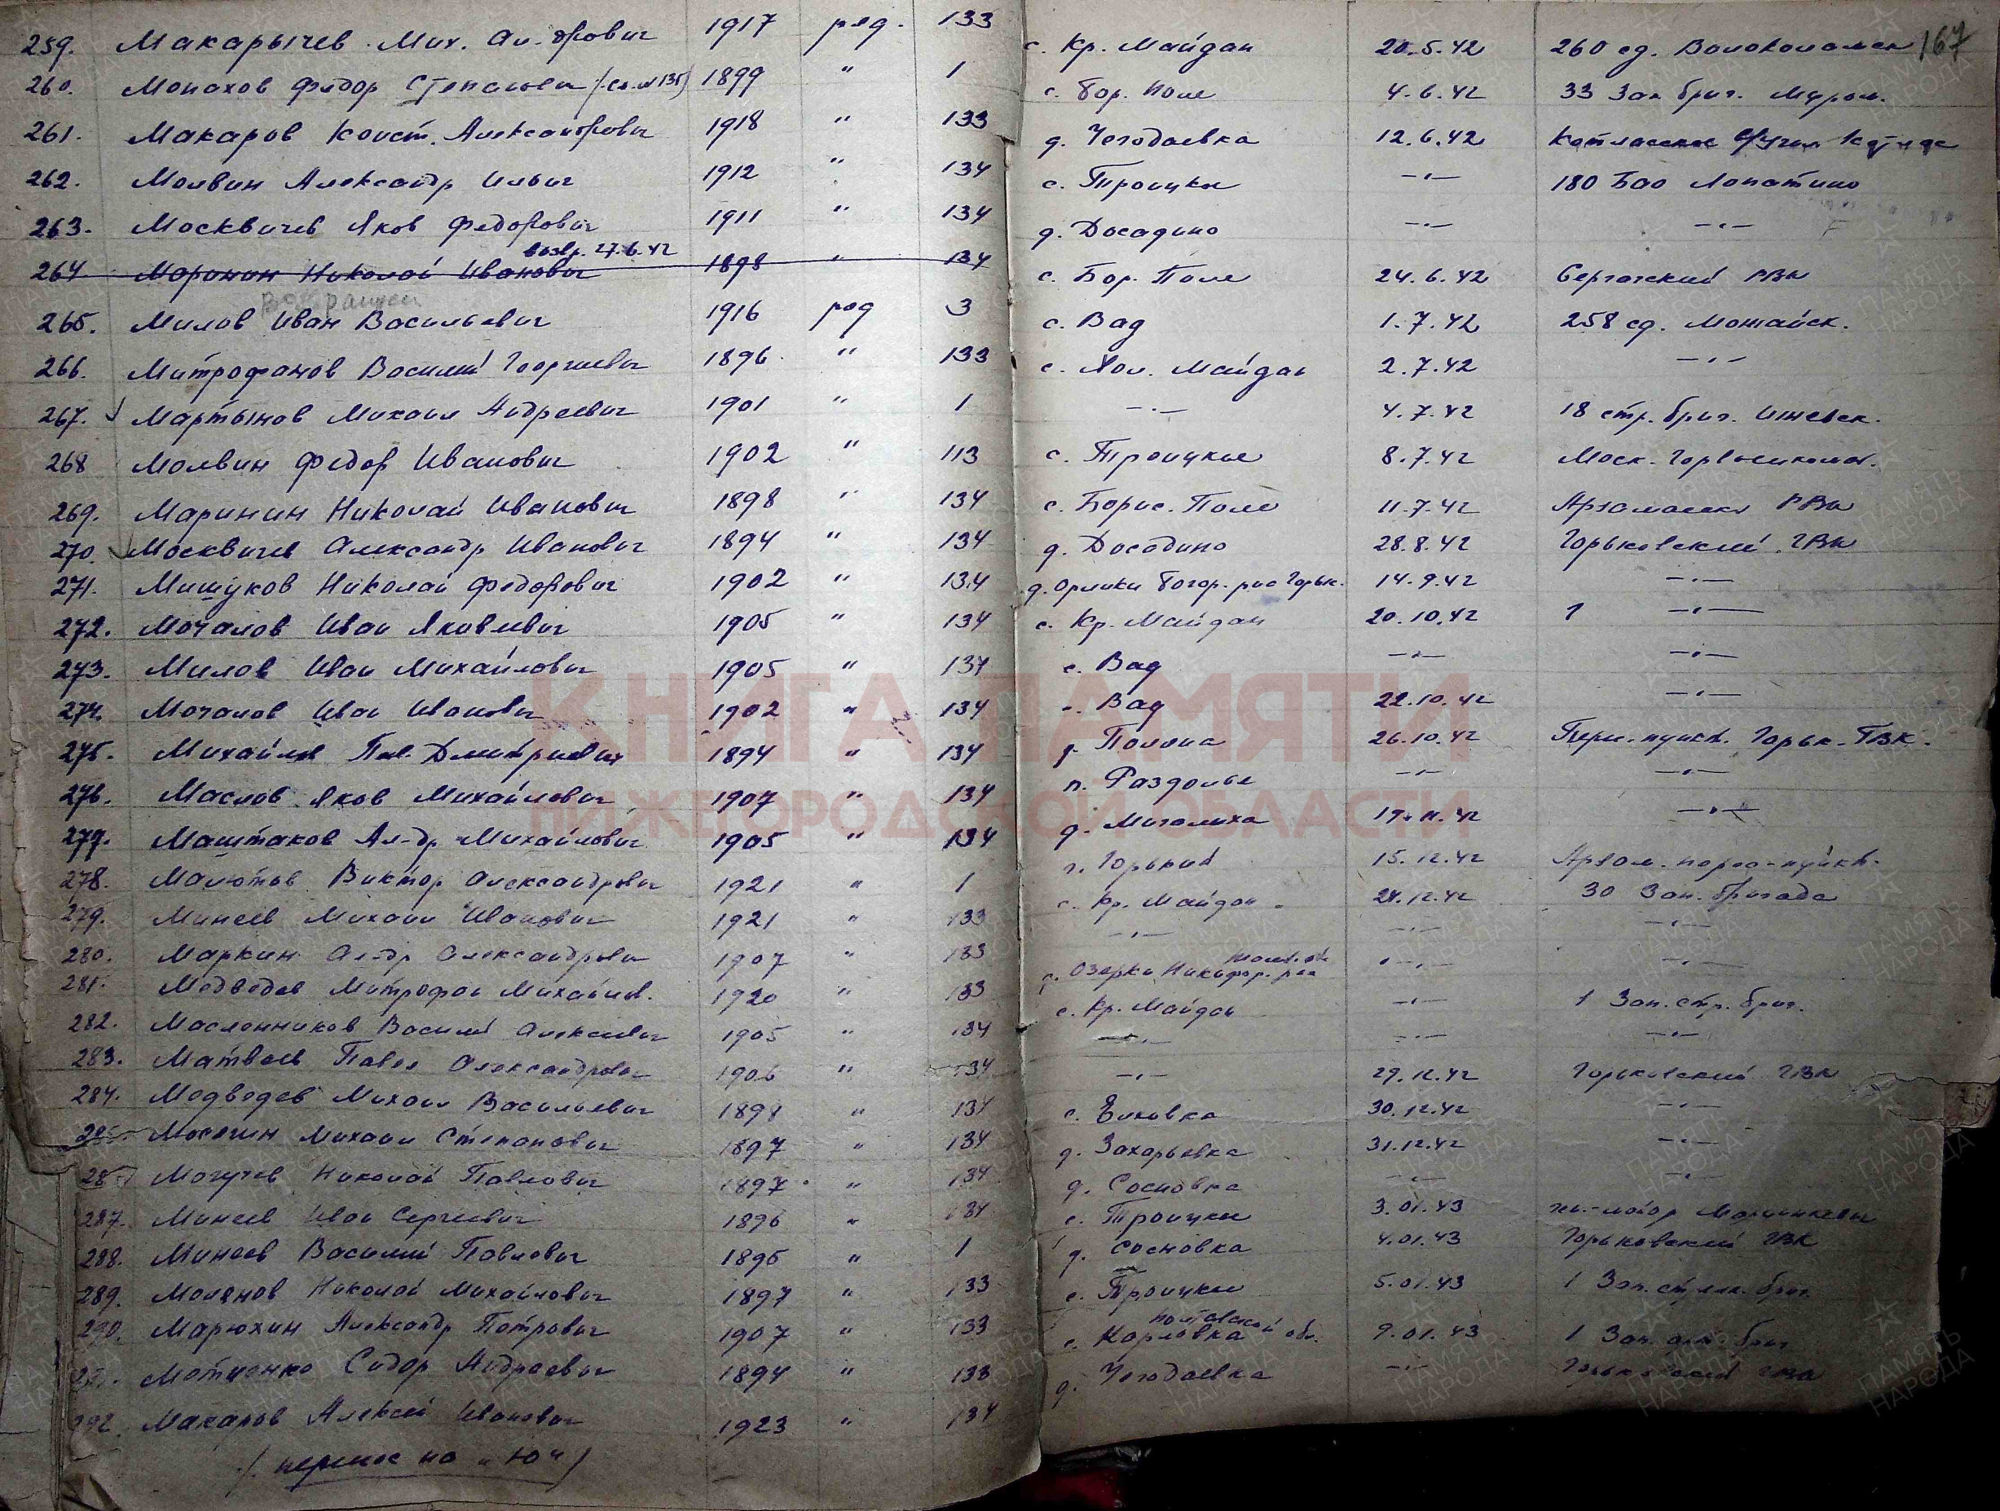 167
259. Макарычев Мих. Ал-дрович 1917 ряд. 133 с. Кр. Майдан 20.5.42 260 сд. Волоколамск
260. Монахов Федор Степанович 1899 " 1 с. Бор. Поле 4.6.42 33 Зап. бриг. Муром.
261. Макаров Конст. Александрович 1918 " 133 д. Чегодаевка 12.6.42
262. Молвин Александр Ильич 1912 " 134 с. Троицкое —"— 180 Бао Лопатино
263. Москвичев Яков Федорович 1911 " 134 д. Досадино —"— —"—
возвр. 27.6.42
264 Маринин Николай Иванович 1898 " 134 с. Бор. Поле 24.6.42 Сергачский РВК
Возвращен
265. Милов Иван Васильевич 1916 ряд 3 с. Вад 1.7.42 258 сд. Можайск.
266. Митрофанов Василий Георгиевич 1896 " 133 с. Хол. Майдан 2.7.42 —"—
267. Мартынов Михаил Андреевич 1901 " 1 —"— 4.7.42 18 стр. бриг. Ижевск.
268 Молвин Федор Иванович 1902 " 113 с. Троицкое 8.7.42 Моск.
269. Маринин Николай Иванович 1898 " 134 с. Борис. Поле 11.7.42 Арзамасск РВК
270. Москвичев Александр Иванович 1894 " 134 д. Досадино 28.8.42 Горьковский ГВК
271. Мишуков Николай Федорович 1902 " 134 д. Орлики Богор. р-на Горьк. 14.9.42 —"—
272. Мочалов Иван Яковлевич 1905 " 134 с. Кр. Майдан 20.10.42 —"—
273. Милов Иван Михайлович 1905 " 134 с. Вад —"— —"—
274. Мочалов Иван Иванович 1902 " 134 с. Вад 22.10.42 —"—
275. Михайлов Пав. Дмитриевич 1894 " 134 д. Поляна 26.10.42 Горьк. ГВК.
276. Маслов Яков Михайлович 1907 " 134 п. Раздолье —"— —"—
277. Маштаков Ал-др Михайлович 1905 " 134 д. Мигалиха 19.11.42 —"—
278. Малютов Виктор Александрович 1921 " 1 г. Горький 15.12.42 Арзам. перес-пункт.
279. Минеев Михаил Иванович 1921 " 133 с. Кр. Майдан 24.12.42 30 Зап. бригада
280. Маркин Ал-др Александрович 1907 " 133 —"— —"— —"—
281. Медведев Митрофан Михайлов. 1920 " 133 с. Озерки Никифор. р-на —"— —"—
282. Масленников Василий Алексеевич 1905 " 134 с. Кр. Майдан —"— 1 Зап. стр. бриг.
283. Матвеев Павел Александрович 1906 " 134 —"— —"— —"—
284. Медведев Михаил Васильевич 1898 " 134 —"— 29.12.42 Горьковский ГВК
285. Мосягин Михаил Степанович 1897 " 134 с. Быковка 30.12.42 —"—
Могучев Николай Павлович 1897 " 134 д. Захарьевка 31.12.42 —"—
287. Минеев Иван Сергеевич 1896 " 134 д. Сосновка —"— —"—
288. Минеев Василий Павлович 1895 " 1 с. Троицкое 3.01.43
289. Молянов Николай Михайлович 1897 " 133 д. Сосновка 4.01.43 Горьковский ГВК
290. Марюхин Александр Петрович 1907 " 133 с. Троицкое 5.01.43 1 Зап. бриг.
Матиенко Сидор Андреевич 1894 " 133 с. Карловка Полтавской обл. 9.01.43 1 Зап. бриг
292. Макаров Алексей Иванович 1923 " 134 д. Чегодаевка —"— Горьковский ГВК
(перенос на "Ю")
КНИГА ПАМЯТИ
НИЖЕГОРОДСКОЙ ОБЛАСТИ
ПАМЯТЬ НАРОДА